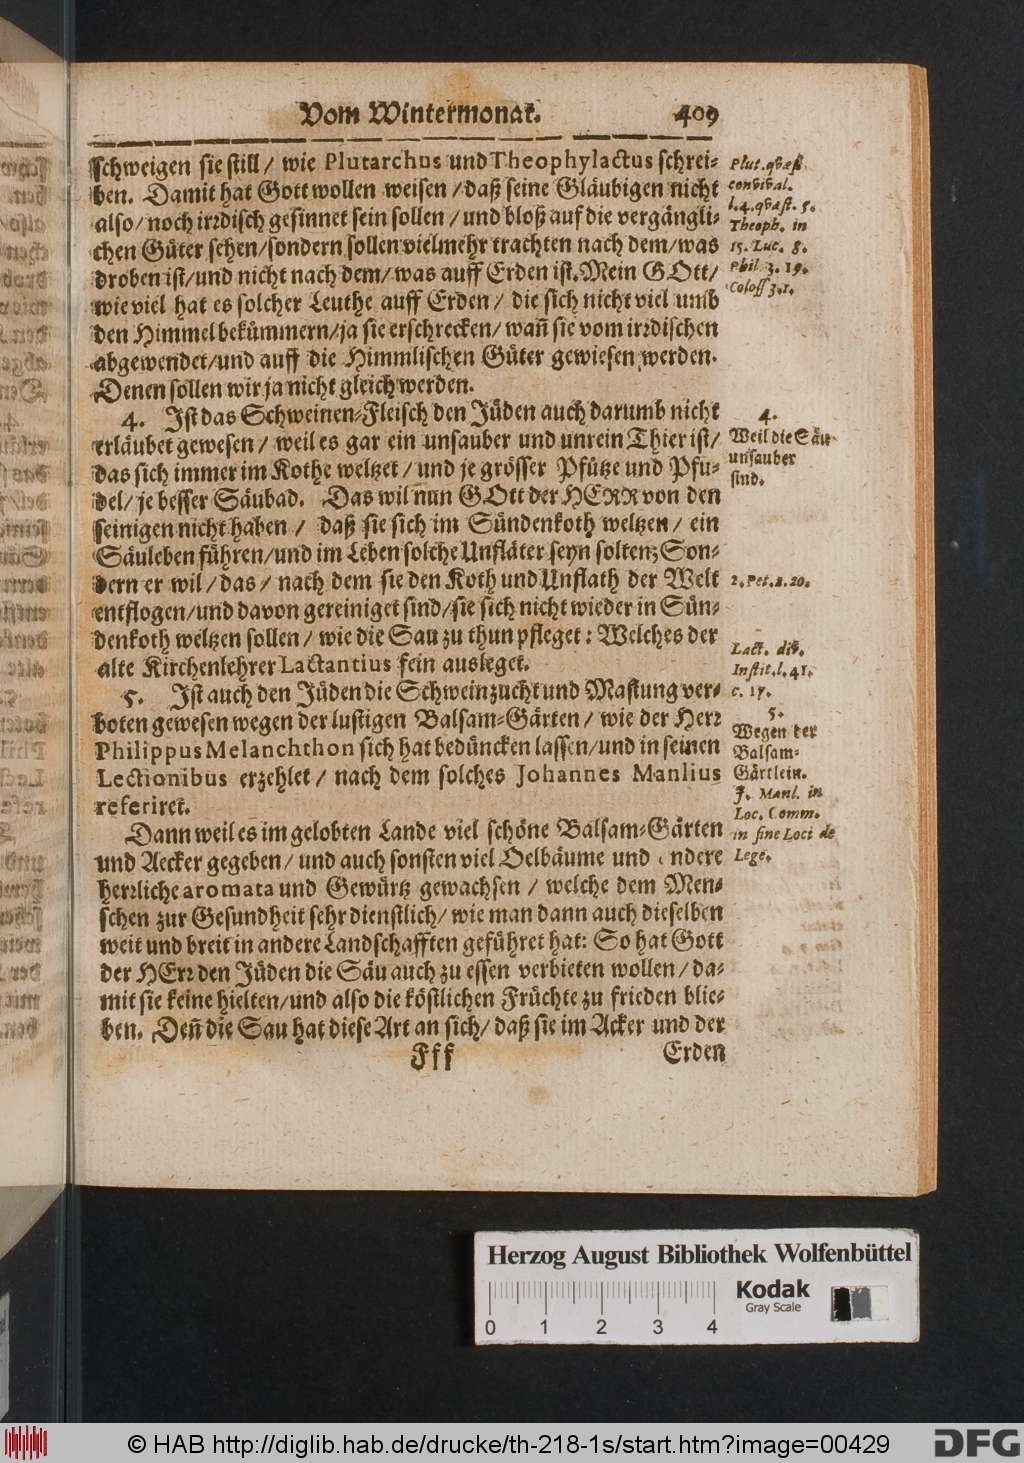 Vom Wintermonat. 409
schweigen sie still/ wie Plutarchus und Theophylactus schrei-
ben. Damit hat Gott wollen weisen/ daß seine Gläubigen nicht
also/ noch irrdisch gesinnet sein sollen/ und bloß auf die vergängli-
chen Güter sehen/ sondern sollen vielmehr trachten nach dem/ was
droben ist/ und nicht nach dem/ was auff Erden ist. Mein GOtt/
wie viel hat es solcher Leuthe auff Erden/ die sich nicht viel umb
den Himmel bekümmern/ ja sie erschrecken/ wañ sie vom irrdischen
abgewendet/ und auff die Himmlischen Güter gewiesen werden.
Denen sollen wir ja nicht gleich werden.
4. Ist das Schweinen-Fleisch den Jüden auch darumb nicht
erläubet gewesen/ weil es gar ein unsauber und unrein Thier ist/
das sich immer im Kothe weltzet/ und je grösser Pfütze und Pfu-
del/ je besser Säubad. Das wil nun GOtt der HERR von den
seinigen nicht haben/ daß sie sich im Sündenkoth weltzen/ ein
Säuleben führen/ und im Leben solche Unfläter seyn solten; Son-
dern er wil/ das/ nach dem sie den Koth und Unflath der Welt
entflogen/ und davon gereiniget sind/ sie sich nicht wieder in Sün-
denkoth weltzen sollen/ wie die Sau zu thun pfleget: Welches der
alte Kirchenlehrer Lactantius fein ausleget.
5. Ist auch den Jüden die Schweinzucht und Mastung ver-
boten gewesen wegen der lustigen Balsam-Gärten/ wie der Herr
Philippus Melanchthon sich hat bedüncken lassen/ und in seinen
Lectionibus erzehlet/ nach dem solches Johannes Manlius
referiret.
Dann weil es im gelobten Lande viel schöne Balsam-Gärten
und Aecker gegeben/ und auch sonsten viel Oelbäume und andere
herrliche aromata und Gewürtz gewachsen/ welche dem Men-
schen zur Gesundheit sehr dienstlich/ wie man dann auch dieselben
weit und breit in andere Landschafften geführet hat: So hat Gott
der HErr den Jüden die Säu auch zu essen verbieten wollen/ da-
mit sie keine hielten/ und also die köstlichen Früchte zu frieden blie-
ben. Deñ die Sau hat diese Art an sich/ daß sie im Acker und der
Fff Erden
Plut. qvæst.
convival.
l. 4. qvæst. 5.
Theoph. in
15. Luc. 8.
Phil. 3. 19.
Coloss 3. 1.
4.
Weil die Säu
unsauber
sind.
2. Pet. 2. 20.
Lact. div.
Instit. l. 41.
c. 17.
5.
Wegen der
Balsam-
Gärtlein.
J. Manl. in
Loc. Comm.
in fine Loci de
Lege.
Herzog August Bibliothek Wolfenbüttel
Kodak
Gray Scale
0 1 2 3 4
© HAB http://diglib.hab.de/drucke/th-218-1s/start.htm?image=00429
DFG